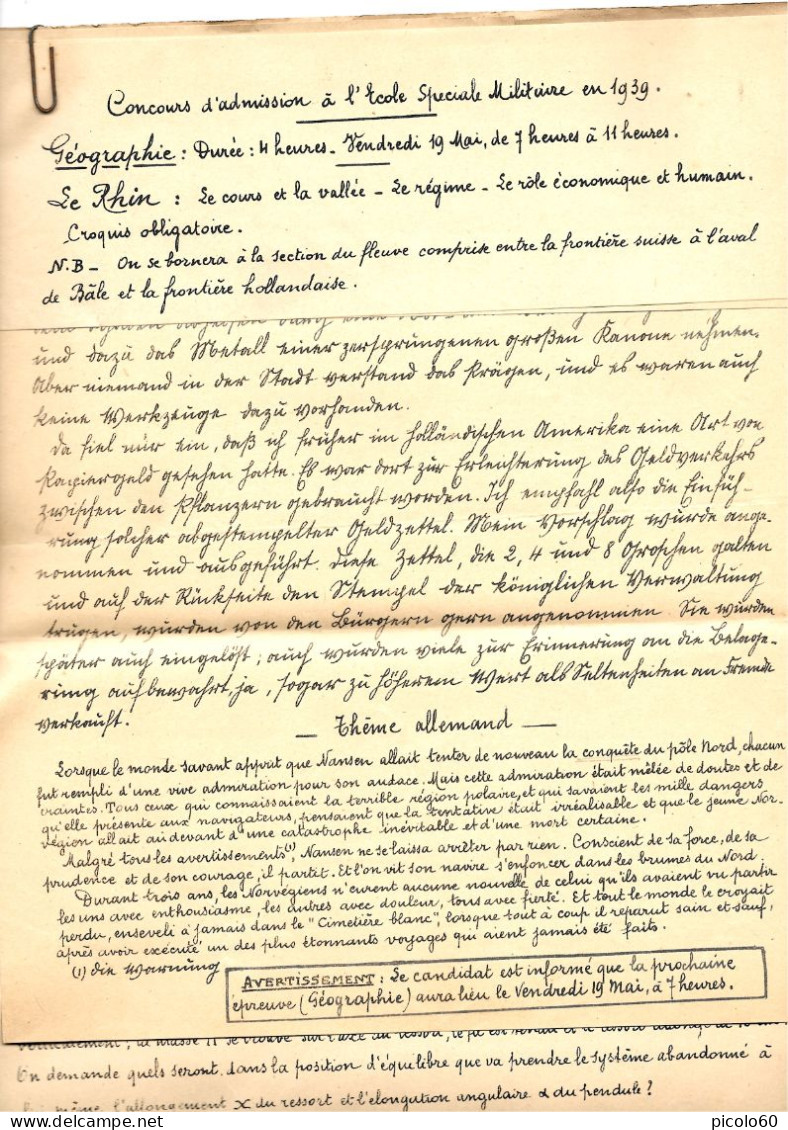 Concours d'admission à l'Ecole Speciale Militaire en 1939.
Géographie : Durée : 4 heures - Vendredi 19 Mai, de 7 heures à 11 heures.
Le Rhin : Le cours et la vallée - Le régime - Le rôle économique et humain.
Croquis obligatoire.
N.B - On se bornera à la section du fleuve comprise entre la frontière suisse à l'aval
de Bâle et la frontière hollandaise.
und dazu das Metall einer zersprungenen großen Kanone nehmen.
Aber niemand in der Stadt verstand das Prägen, und es waren auch
keine Werkzeuge dazu vorhanden.
Da fiel mir ein, daß ich früher im holländischen Amerika eine Art von
Papiergeld gesehen hatte. Es war dort zur Erleichterung des Geldverkehrs
zwischen den Pflanzern gebraucht worden. Ich empfahl also die Einfüh-
rung solcher abgestempelter Geldzettel. Mein Vorschlag wurde ange-
nommen und ausgeführt. Diese Zettel, die 2, 4 und 8 Groschen galten
und auf der Rückseite den Stempel der königlichen Verwaltung
trugen, wurden von den Bürgern gern angenommen. Sie wurden
später auch eingelöst; auch wurden viele zur Erinnerung an die Belage-
rung aufbewahrt, ja, sogar zu höherem Wert als Seltenheiten an Fremde
verkauft.
- Thème allemand -
Lorsque le monde savant apprit que Nansen allait tenter de nouveau la conquête du pôle Nord, chacun
fut rempli d'une vive admiration pour son audace. Mais cette admiration était mêlée de doutes et de
craintes. Tous ceux qui connaissaient la terrible région polaire, et qui savaient les mille dangers
qu'elle présente aux navigateurs, pensaient que la tentative était irréalisable et que le jeune Nor-
végien allait au devant d'une catastrophe inévitable et d'une mort certaine.
Malgré tous les avertissements (1), Nansen ne se laissa arrêter par rien. Conscient de sa force, de sa
prudence et de son courage, il partit. Et l'on vit son navire s'enfoncer dans les brumes du Nord.
Durant trois ans, les Norvégiens n'eurent aucune nouvelle de celui qu'ils avaient vu partir
les uns avec enthousiasme, les autres avec douleur, tous avec fierté. Et tout le monde le croyait
perdu, enseveli à jamais dans le "Cimetière blanc", lorsque tout à coup il reparut sain et sauf,
après avoir exécuté un des plus étonnants voyages qui aient jamais été faits.
(1) die Warnung
AVERTISSEMENT : Le candidat est informé que la prochaine
épreuve (Géographie) aura lieu le Vendredi 19 Mai, à 7 heures.
On demande quels seront dans la position d'équilibre que va prendre le système abandonné à
même l'allongement x du ressort et l'élongation angulaire α du pendule ?
www.delcampe.net
picolo60